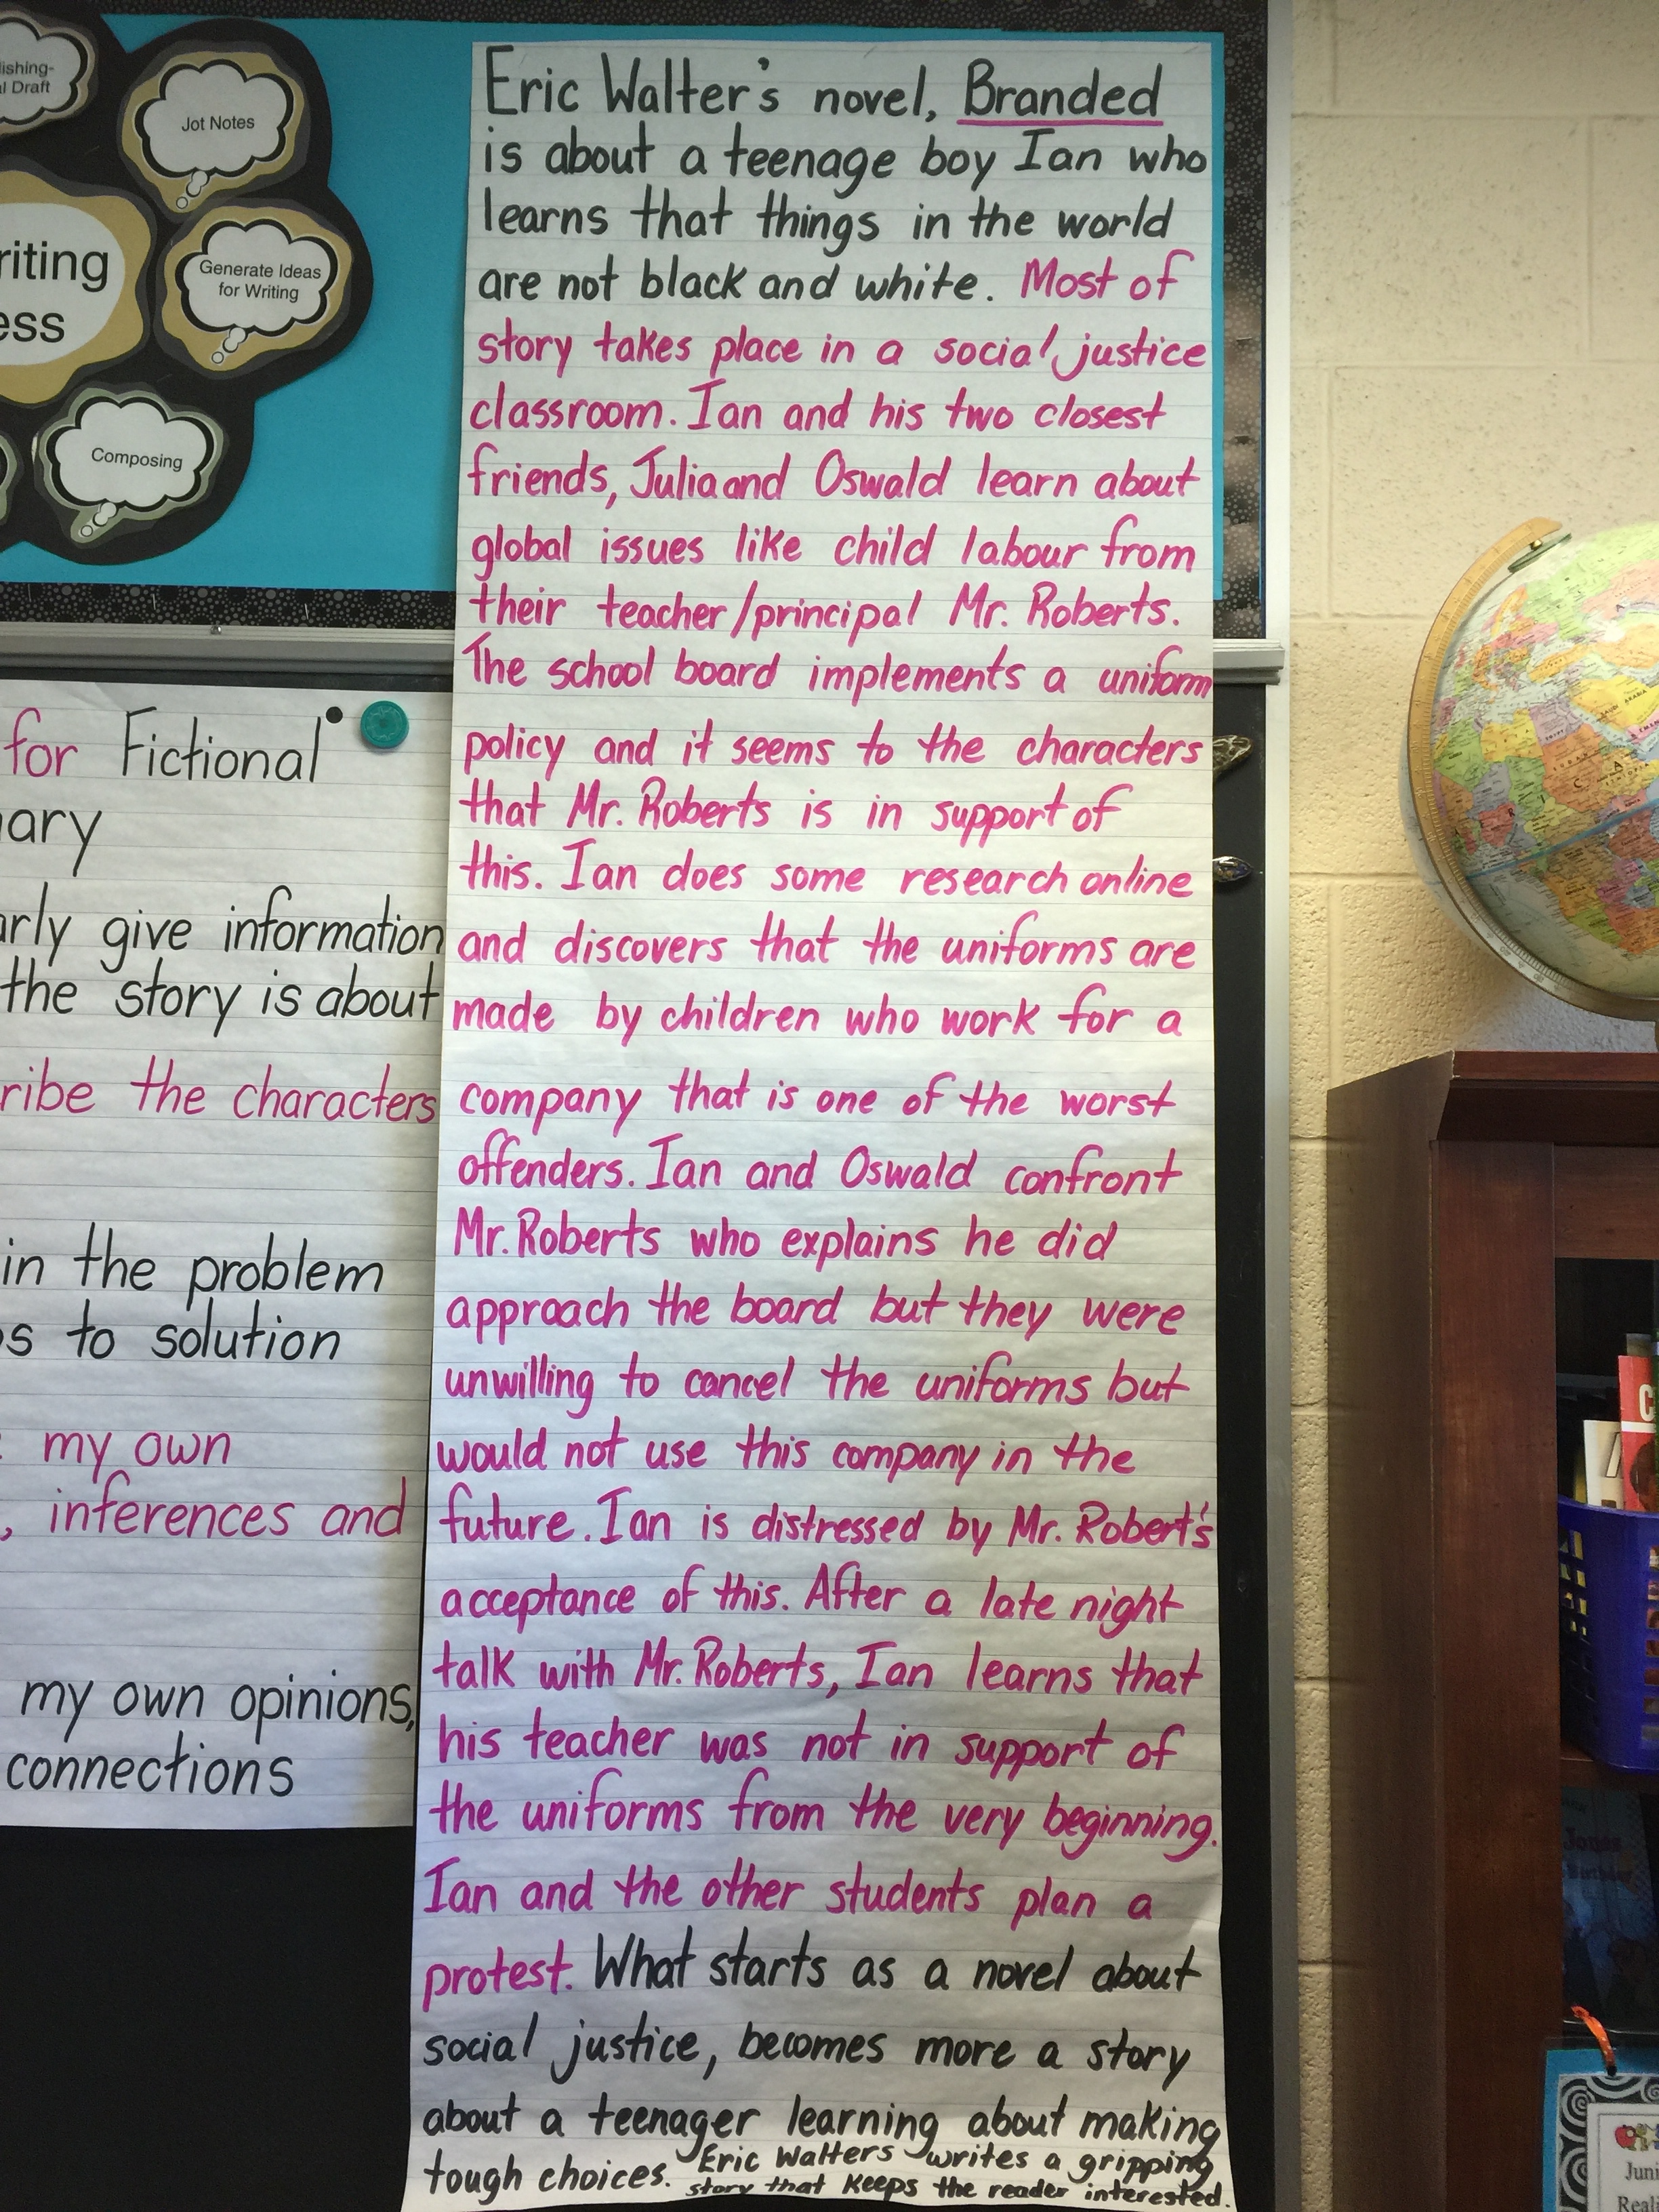 Draft
Jot Notes
Generate Ideas
for Writing
Composing
Eric Walter's novel, Branded
is about a teenage boy Ian who
learns that things in the world
are not black and white. Most of
story takes place in a social justice
classroom. Ian and his two closest
friends, Julia and Oswald learn about
global issues like child labour from
their teacher/principal Mr. Roberts.
The school board implements a uniform
policy and it seems to the characters
that Mr. Roberts is in support of
this. Ian does some research online
and discovers that the uniforms are
made by children who work for a
company that is one of the worst
offenders. Ian and Oswald confront
Mr. Roberts who explains he did
approach the board but they were
unwilling to cancel the uniforms but
would not use this company in the
future. Ian is distressed by Mr. Robert's
acceptance of this. After a late night
talk with Mr. Roberts, Ian learns that
his teacher was not in support of
the uniforms from the very beginning.
Ian and the other students plan a
protest. What starts as a novel about
social justice, becomes more a story
about a teenager learning about making
tough choices. Eric Walters writes a gripping
story that keeps the reader interested.
for Fictional
give information
the story is about
the characters
in the problem
to solution
my own
inferences and
my own opinions,
connections